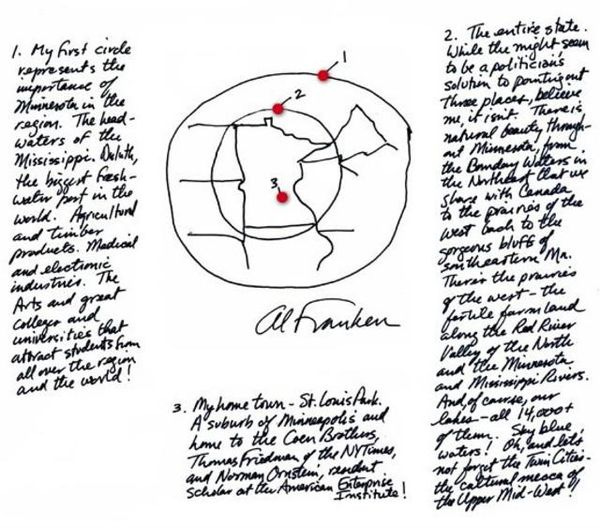 1. My first circle
represents the
importance of
Minnesota in the
region. The head-
waters of the
Mississippi. Duluth,
the biggest fresh-
water port in the
world. Agricultural
and timber
products. Medical
and electronic
industries. The
Arts and great
colleges and
universities that
attract students from
all over the region
and the world!
1
2
3
Al Franken
2. The entire state.
While the might seem
to be a politician's
solution to pointing out
three places, believe
me, it isn't. There is
natural beauty through-
out Minnesota, from
the Boundary Waters in
the Northeast that we
share with Canada
to the prairies of the
west back to the
gorgeous bluffs of
southeastern Mn.
There's the prairies
of the west - the
fertile farm land
along the Red River
Valley of the North
and the Minnesota
and Mississippi Rivers.
And, of course, our
lakes - all 14,000+
of them. Sky blue
waters! Oh, and let's
not forget the Twin Cities -
the cultural mecca of
the Upper Mid-West!!
3. My home town - St. Louis Park.
A suburb of Minneapolis and
home to the Coen Brothers,
Thomas Friedman of the NYTimes,
and Norman Ornstein, resident
scholar at the American Enterprise
Institute!